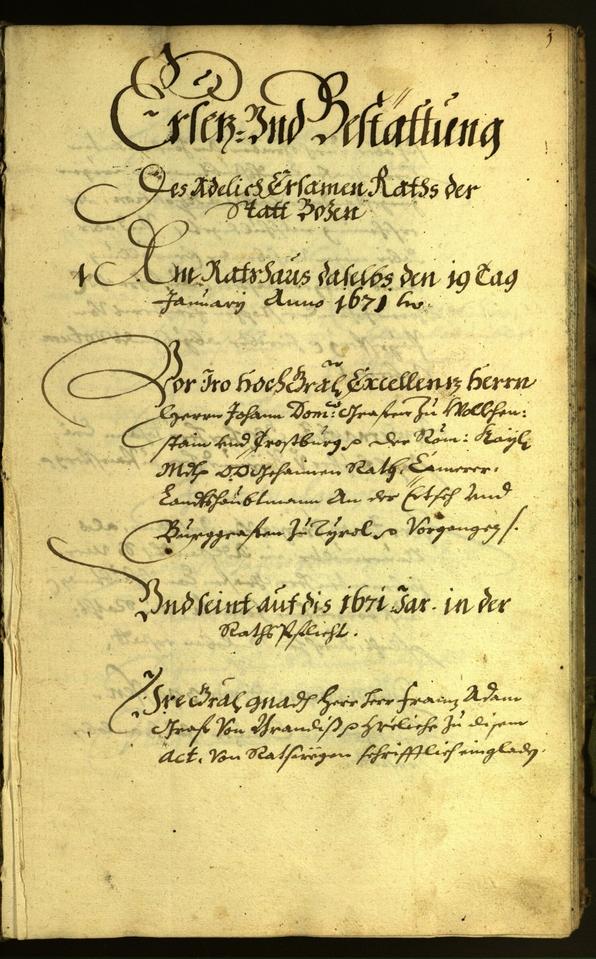 Ersetz- Vnd Bestättung
Des Adelich Ersamen Raths der
Statt Bozen
1 Am Rathaus daselbs den 19 Tag
January Anno 1671 
Vor Iro hoch Gräfl. Excellentz Herrn
Herrn Johann Dom: Grafen Zu Wolkhen:
stain vnd Trostburg der Röm: Kayl:
Mdt. O.Ö. Gehaimen Rath, Camerer.
Landtshaubtmann An der Etsch Vnd
Burggrafen Zu Tyrol Vorgangen /.
Vnd seint auf dis 1671 Jar. in der
Raths Pflicht.
Ire Gräfl. gnad. Herr Herr Franz Adam
Graf Von Brandiß Zu disem
Act. Von Rats wegen schrifftlich eingladen.